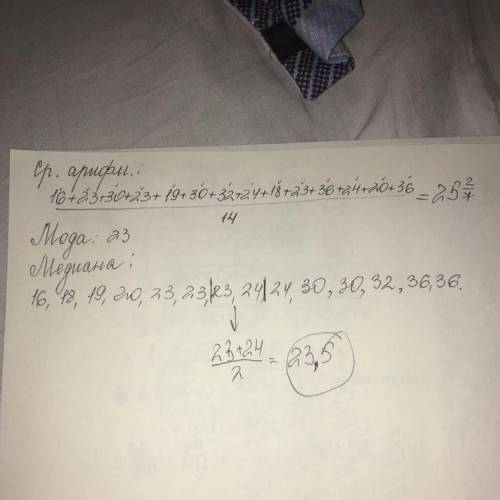 Ср. арифм.:
16+23+30+23+19+30+32+24+18+23+36+24+20+36 = 25 2/7
14
Мода: 23
Медиана:
16, 18, 19, 20, 23, 23,|23, 24| 24, 30, 30, 32, 36, 36.
↓
23+24
2
= 23,5